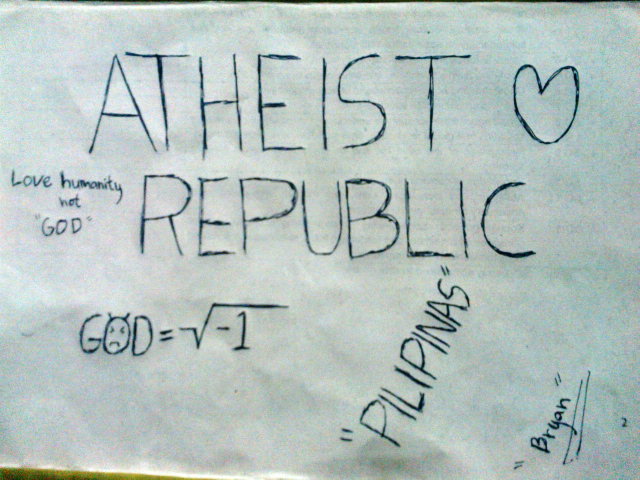 ATHEIST
REPUBLIC
Love humanity
not
"GOD"
GOD = √-1
"PILIPINAS"
"Bryan"
2